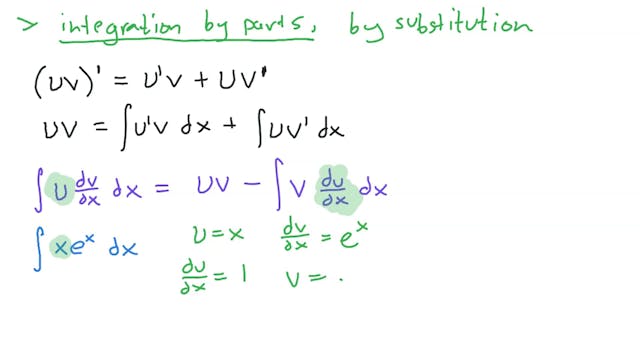 > integration by parts, by substitution
(UV)' = U'V + UV'
UV = ∫U'V dx + ∫UV' dx
∫ U dv/dx dx = UV - ∫ V du/dx dx
∫ xe^x dx U = x dv/dx = e^x
du/dx = 1 V = .